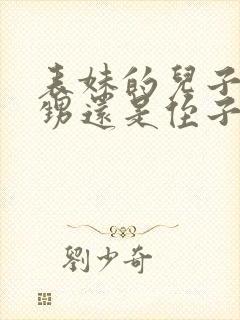 表妹的兒子
甥還是侄子
劉少奇